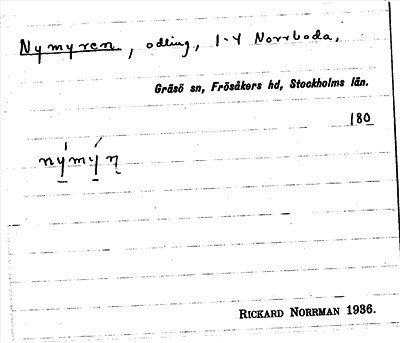 Nymyren, odling, 1-4 Norrboda.
Gräsö sn, Frösåkers hd, Stockholms län.
180
nýmýn̥
RICKARD NORRMAN 1936.